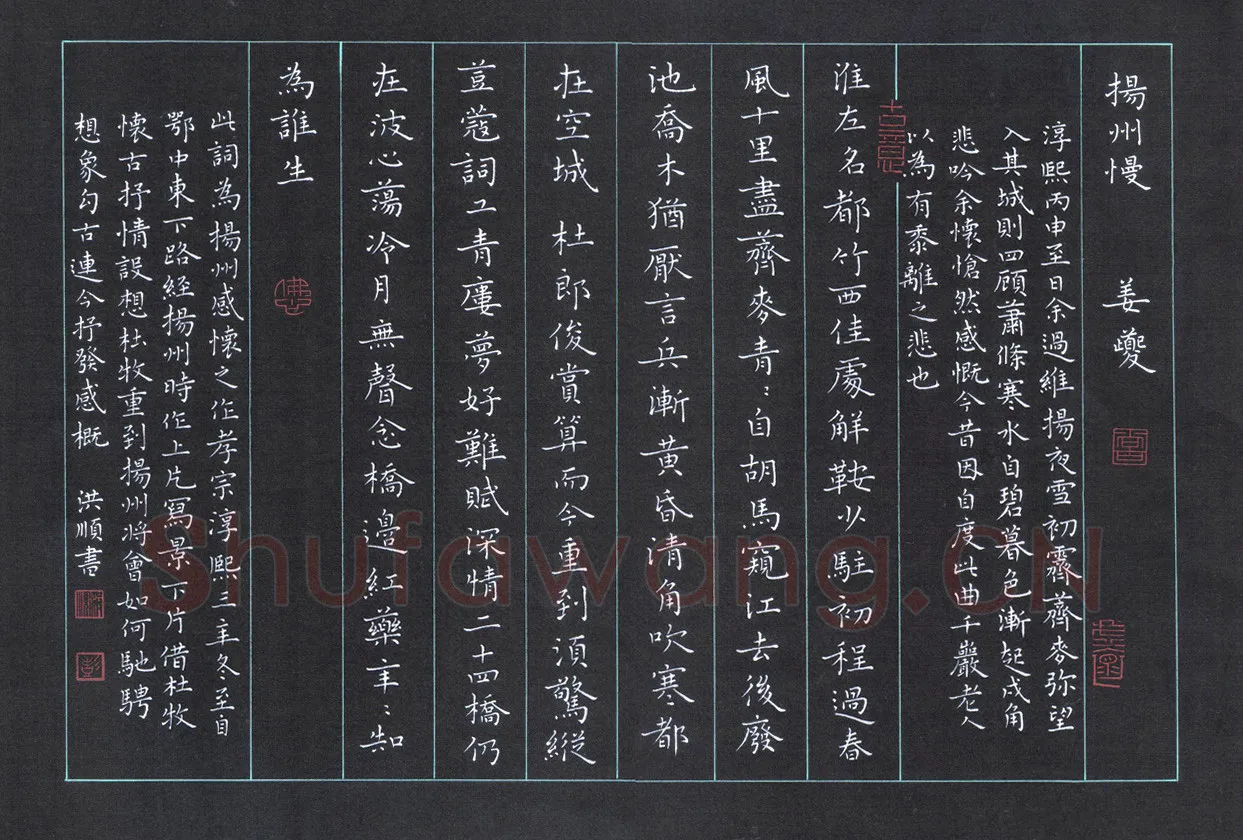 揚州慢　姜夔
淳熙丙申至日余過維揚夜雪初霽薺麥弥望
入其城則四顧蕭條寒水自碧暮色漸起戍角
悲吟余懷愴然感慨今昔因自度此曲千巖老人
以為有黍離之悲也
淮左名都竹西佳處解鞍少駐初程過春
風十里盡薺麥青﹕自胡馬窺江去後廢
池喬木猶厭言兵漸黄昏清角吹寒都
在空城　杜郎俊賞算而今重到須驚縱
荳蔻詞工青廔夢好難賦深情二十四橋仍
在波心蕩冷月無聲念橋邊紅藥年﹕知
為誰生
此詞為揚州感懷之作孝宗淳熙三年冬至自
鄂中東下路經揚州時作上片寫景下片借杜牧
懷古抒情設想杜牧重到揚州將會如何馳騁
想象勾古連今抒發感概　洪順書
Shufawang.CN